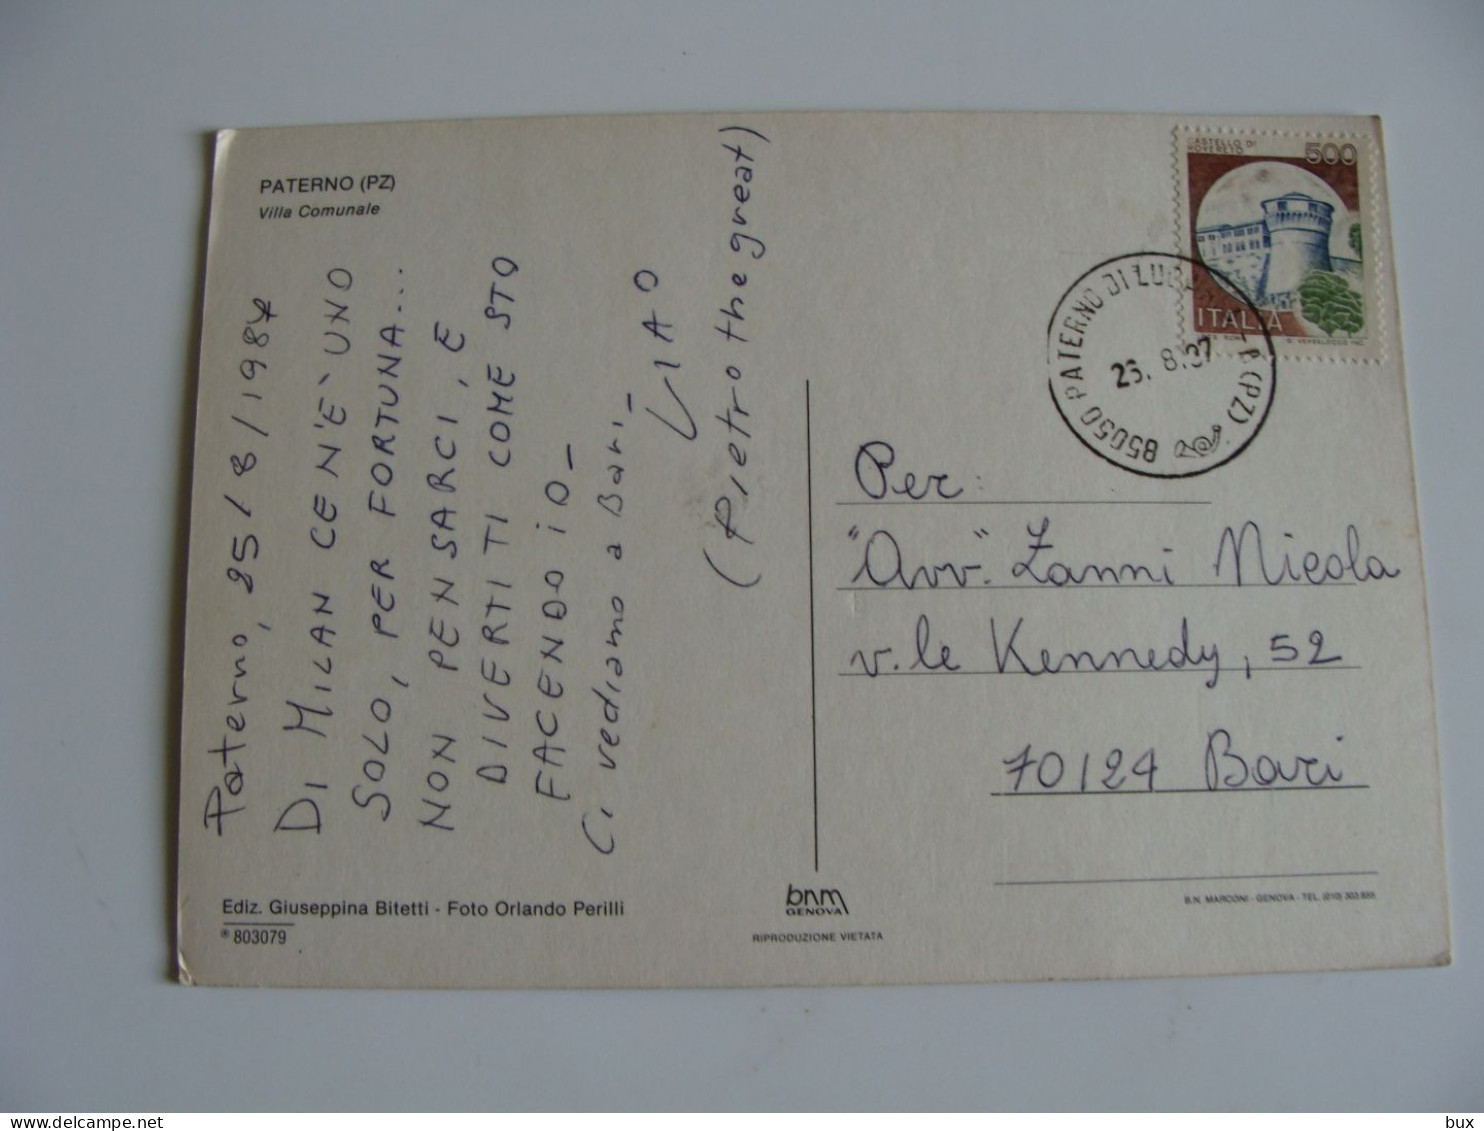 PATERNO (PZ)
Villa Comunale
Paterno, 25/8/1987
DI MILAN CE N'È UNO
SOLO, PER FORTUNA...
NON PENSARCI, E
DIVERTITI COME STO
FACENDO IO_
Ci vediamo a Bari_
CIAO
(Pietro the great)
Ediz. Giuseppina Bitetti - Foto Orlando Perilli
® 803079
bnm
GENOVA
RIPRODUZIONE VIETATA
CASTELLO DI
ROVERETO
500
ITALIA
85050 PATERNO DI (PZ)
8.87
Per:
"Avv." Zanni Nicola
v.le Kennedy, 52
70124 Bari
B.N. MARCONI - GENOVA - TEL. (010)
bux